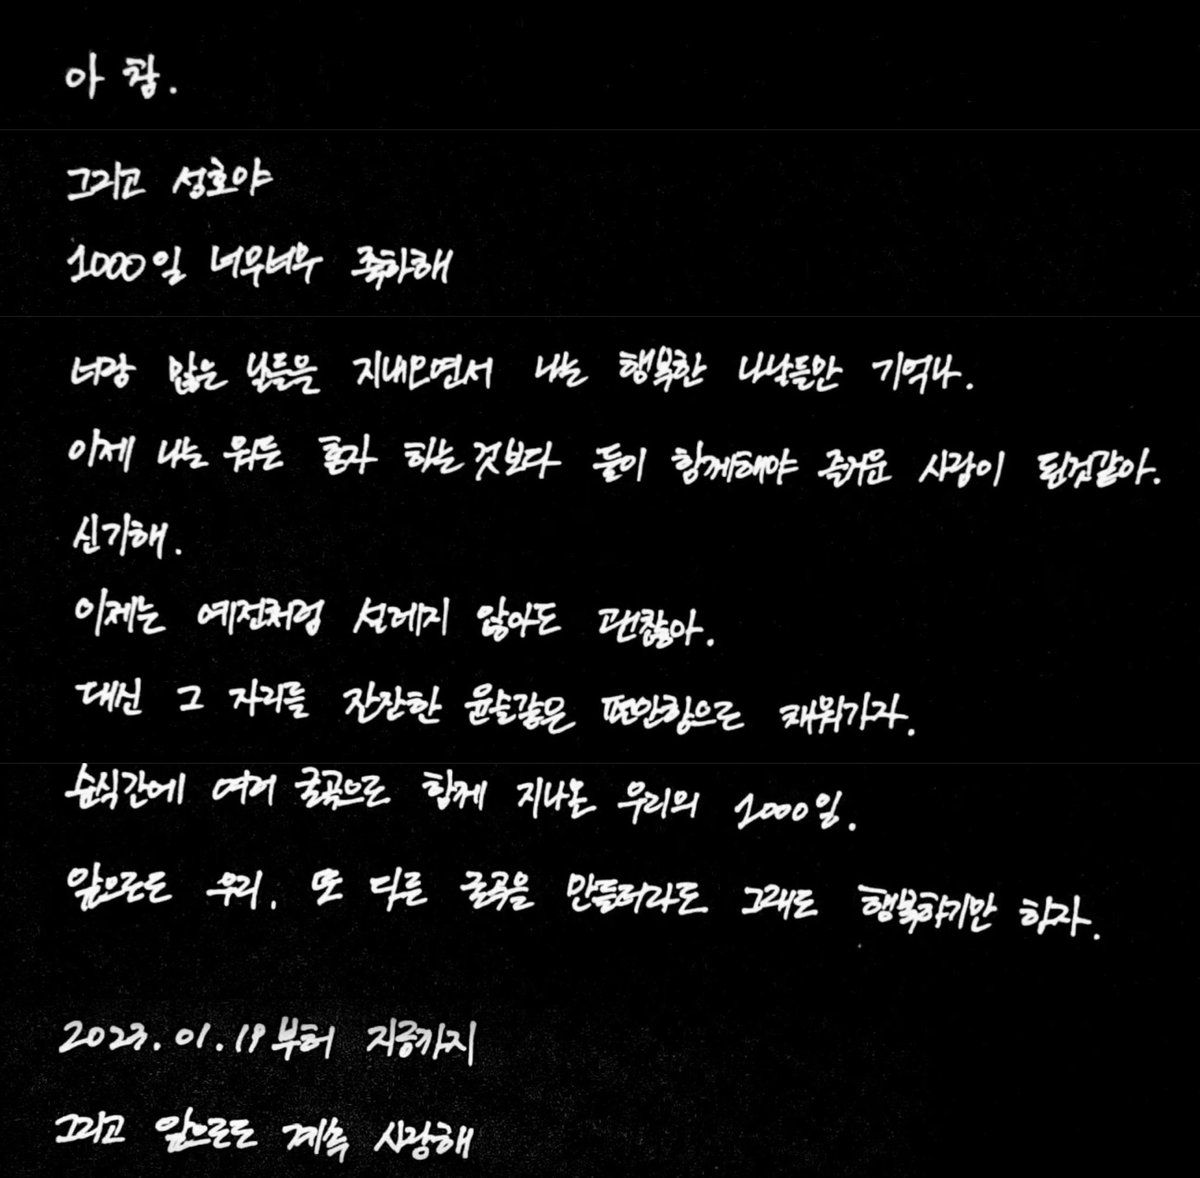 아 참.
그리고 성호야
1000일 너무너무 축하해
너랑 많은 날들을 지내오면서 나는 행복한 나날들만 기억나.
이제 나는 뭐든 혼자 하는것보다 둘이 함께해야 즐거운 사람이 된것같아.
신기해.
이제는 예전처럼 설레지 않아도 괜찮아.
대신 그 자리를 잔잔한 윤슬같은 편안함으로 채워가자.
순식간에 여러 굴곡으로 함께 지나온 우리의 1000일.
앞으로도 우리. 또 다른 굴곡을 만들더라도 그래도 행복하기만 하자.
2023.01.19부터 지금까지
그리고 앞으로도 계속 사랑해